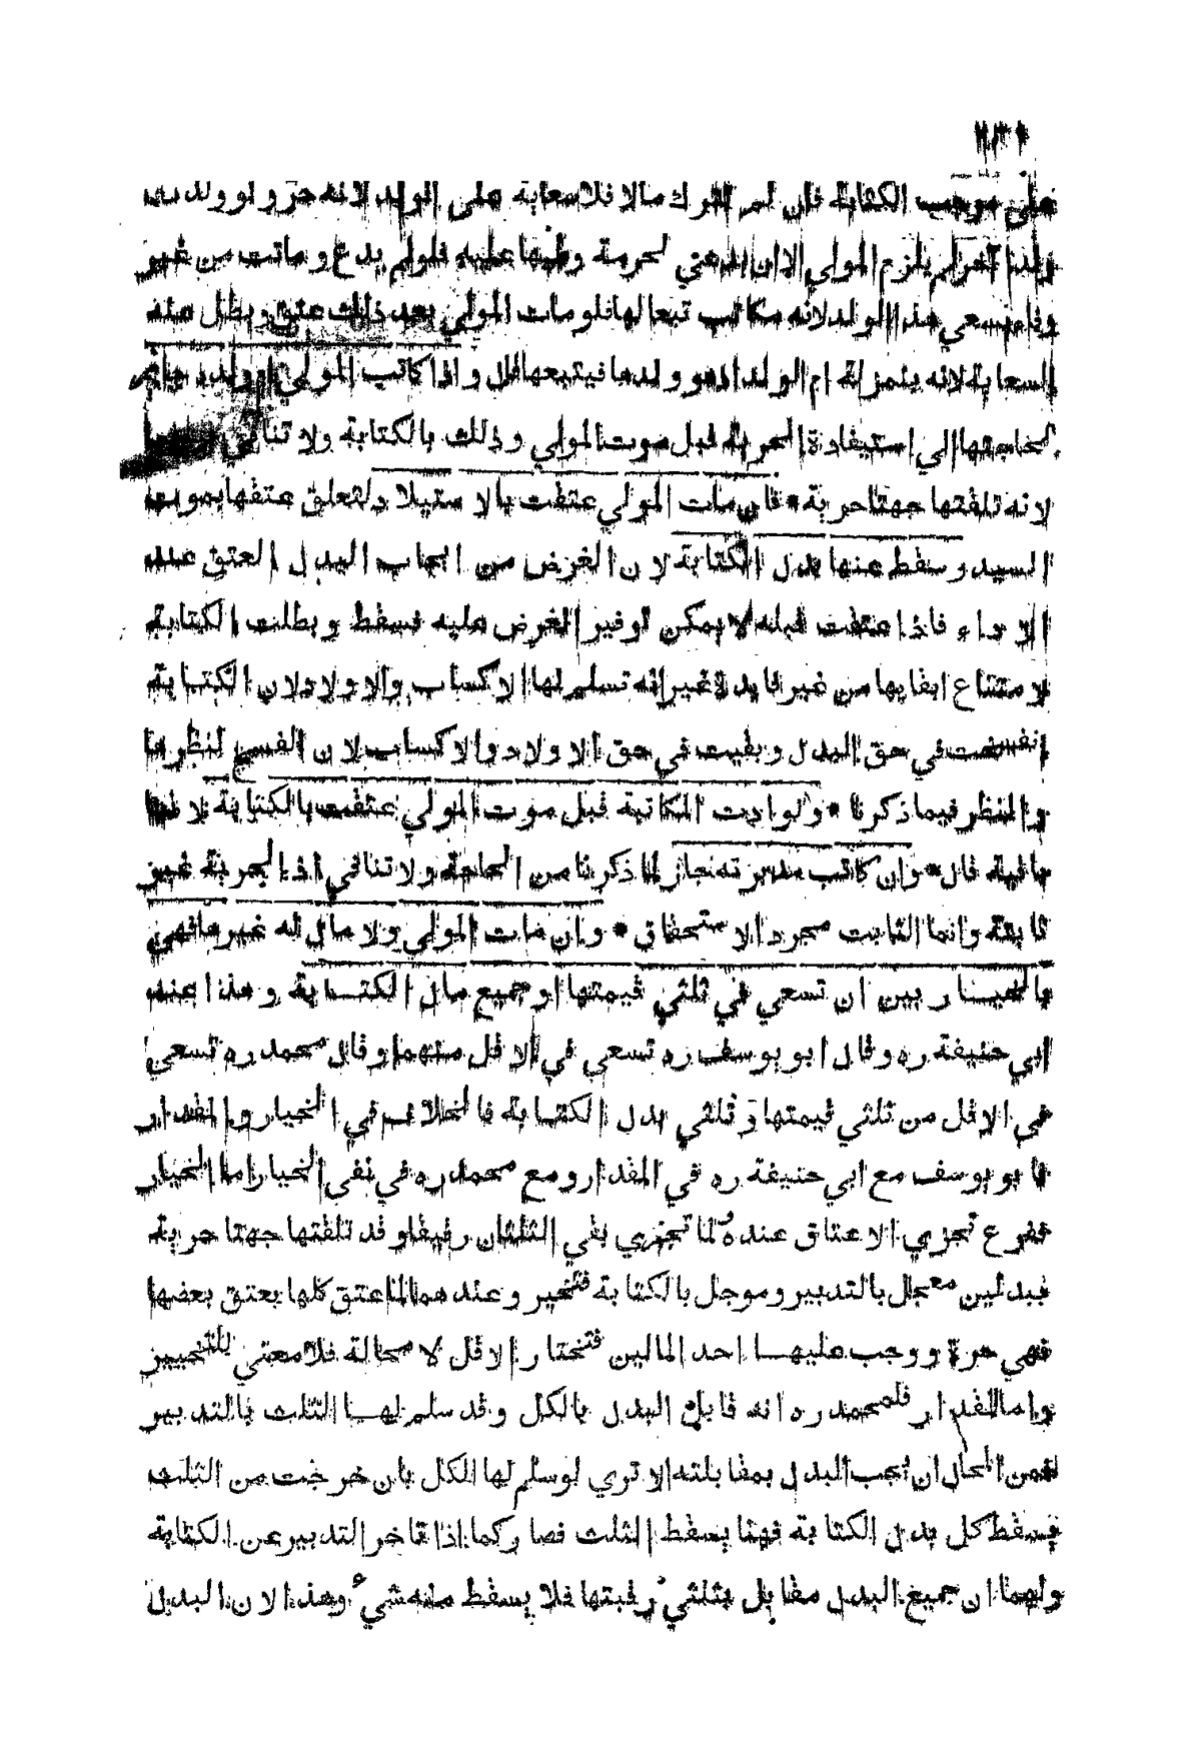 على موجب الكتابة فان لم تترك مالا فلا سعاية على الولد لانه حر ولو ولدت
ولدا آخر لم يلزم المولي الا ان يدعي لحرمة وطيها عليه فلو لم يدع وماتت من غير
وفاء سعي هذا الولد لانه مكاتب تبعا لها فلو مات المولي بعد ذلك عتق وبطل عنه
السعاية لانه بمنزلة ام الولد اذ هو ولدها فيتبعها قال واذا كاتب المولي ام ولده جاز
لحاجتها الي استيفادة الحرية قبل موت المولي وذلك بالكتابة ولا تنافي
لانه تلقتها جهتا حرية * فان مات المولي عتقت بالاستيلاد لتعلق عتقها بموت
السيد وسقط عنها بدل الكتابة لان الغرض من ايجاب البدل العتق عند
الاداء فاذا عتقت قبله لا يمكن توفير الغرض عليه فسقط وبطلت الكتابة
لامتناع ابقايها من غير فايدة غير انه تسلم لها الاكساب والاولاد لان الكتابة
انفسخت في حق البدل وبقيت في حق الاولاد والاكساب لان الفسخ لنظرها
والنظر فيما ذكرنا * ولو ادت المكاتبة قبل موت المولي عتقت بالكتابة لانها
باقية قال * وان كاتب مدبرته جاز لما ذكرنا من الحاجة ولا تنافي اذ الحرية غير
ثابتة وانما الثابت مجرد الاستحقاق * وان مات المولي ولا مال له غيرها فهي
بالخيار بين ان تسعي في ثلثي قيمتها او جميع مال الكتابة وهذا عند
ابي حنيفة ره وقال ابو يوسف ره تسعي في الاقل منهما وقال محمد ره تسعي
في الاقل من ثلثي قيمتها وثلثي بدل الكتابة فالخلاف في الخيار والمقدار
فابو يوسف مع ابي حنيفة ره في المقدار ومع محمد ره في نفي الخيار اما الخيار
ففرع تجزي الاعتاق عنده لما تجزي بقي الثلثان رقيقا وقد تلقتها جهتا حرية
ببدلين معجل بالتدبير وموجل بالكتابة فتخير وعندهما لما عتق كلها بعتق بعضها
فهي حرة ووجب عليها احد المالين فتختار الاقل لا محالة فلا معني للتخيير
واما المقدار فلمحمد ره انه قابل البدل بالكل وقد سلم لها الثلث بالتدبير
فمن المحال ان يجب البدل بمقابلته الا تري لو سلم لها الكل بان خرجت من الثلث
يسقط كل بدل الكتابة فهنا يسقط الثلث فصار كما اذا تاخر التدبير عن الكتابة
ولهما ان جميع البدل مقابل بثلثي رقبتها فلا يسقط منه شيء وهذا لان البدل